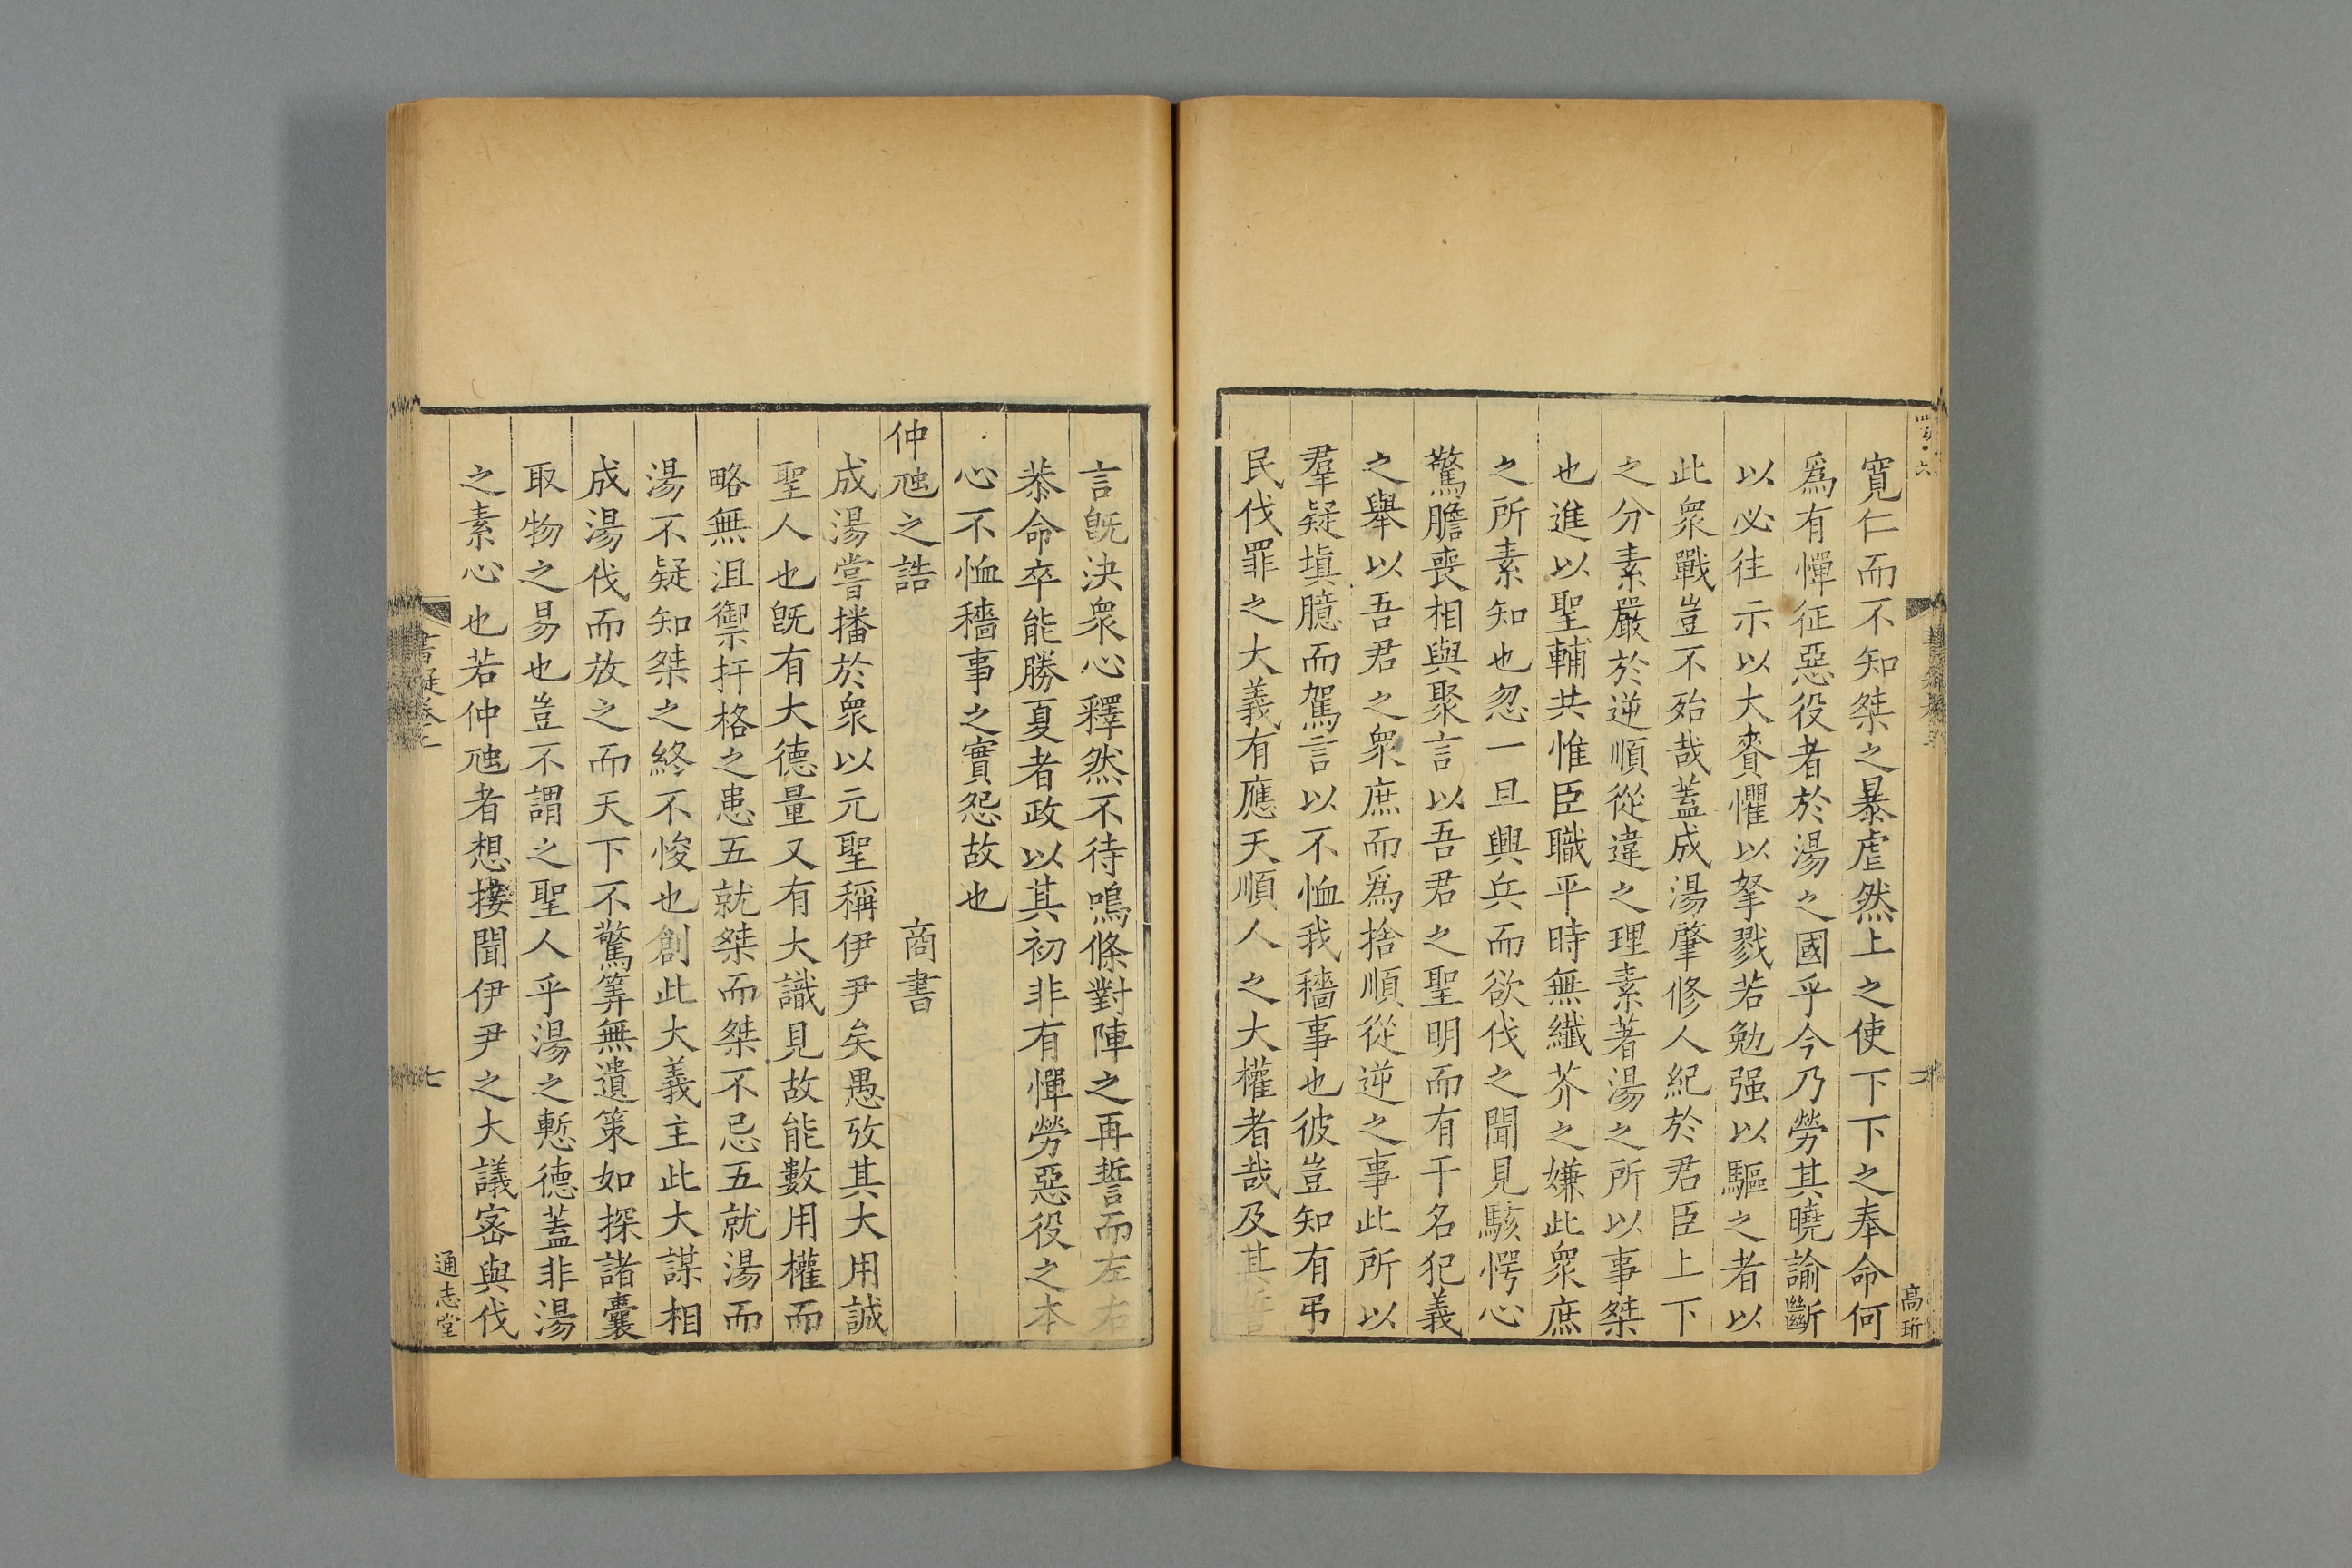 寛仁而不知桀之暴虐然上之使下下之奉命何
爲有憚征惡役者於湯之國乎今乃勞其曉諭斷
以必往示以大賚懼以孥戮若勉强以驅之者以
此衆戰豈不殆哉蓋成湯肇修人紀於君臣上下
之分素嚴於逆順從違之理素著湯之所以事桀
也進以聖輔共惟臣職平時無纖芥之嫌此衆庶
之所素知也忽一旦興兵而欲伐之聞見駭愕心
驚膽喪相與聚言以吾君之聖明而有干名犯義
之舉以吾君之衆庶而爲捨順從逆之事此所以
羣疑塡臆而駕言以不恤我穡事也彼豈知有弔
民伐罪之大義有應天順人之大權者哉及其誓
高珩
言旣決衆心釋然不待鳴條對陣之再誓而左右
恭命卒能勝夏者政以其初非有憚勞惡役之本
心不恤穡事之實怨故也
仲虺之誥 商書
成湯嘗播於衆以元聖稱伊尹矣愚攷其大用誠
聖人也旣有大德量又有大識見故能數用權而
略無沮禦扞格之患五就桀而桀不忌五就湯而
湯不疑知桀之終不悛也創此大義主此大謀相
成湯伐而放之而天下不驚筭無遺策如探諸囊
取物之易也豈不謂之聖人乎湯之慙德蓋非湯
之素心也若仲虺者想接聞伊尹之大議宻與伐
書疑卷二
七
通志堂